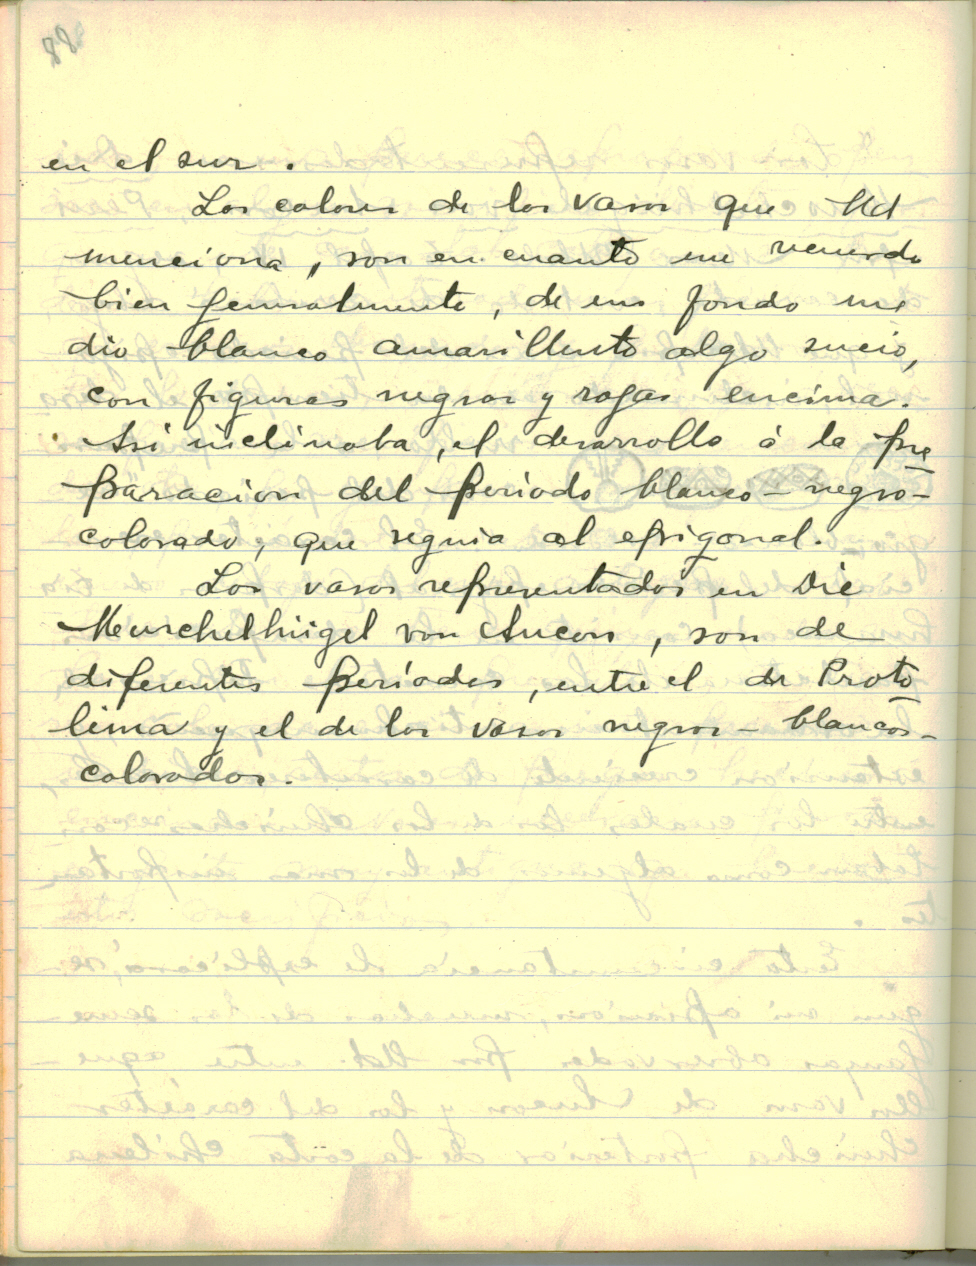 en el sur.
Los colores de los vasos que Ud
menciona, son en cuanto me recuerdo
bien generalmente, de un fondo me
dio blanco amarillento algo sucio,
con figuras negras y rojas encima.
Asi inclinaba, el desarrollo á la pre
paracion del periodo blanco-negro-
colorado, que seguia al epigonal.
Los vasos representados en Die
Muschelhügel von Ancon, son de
diferentes períodos, entre el de Proto
lima y el de los vasos negros-blancos-
colorados.